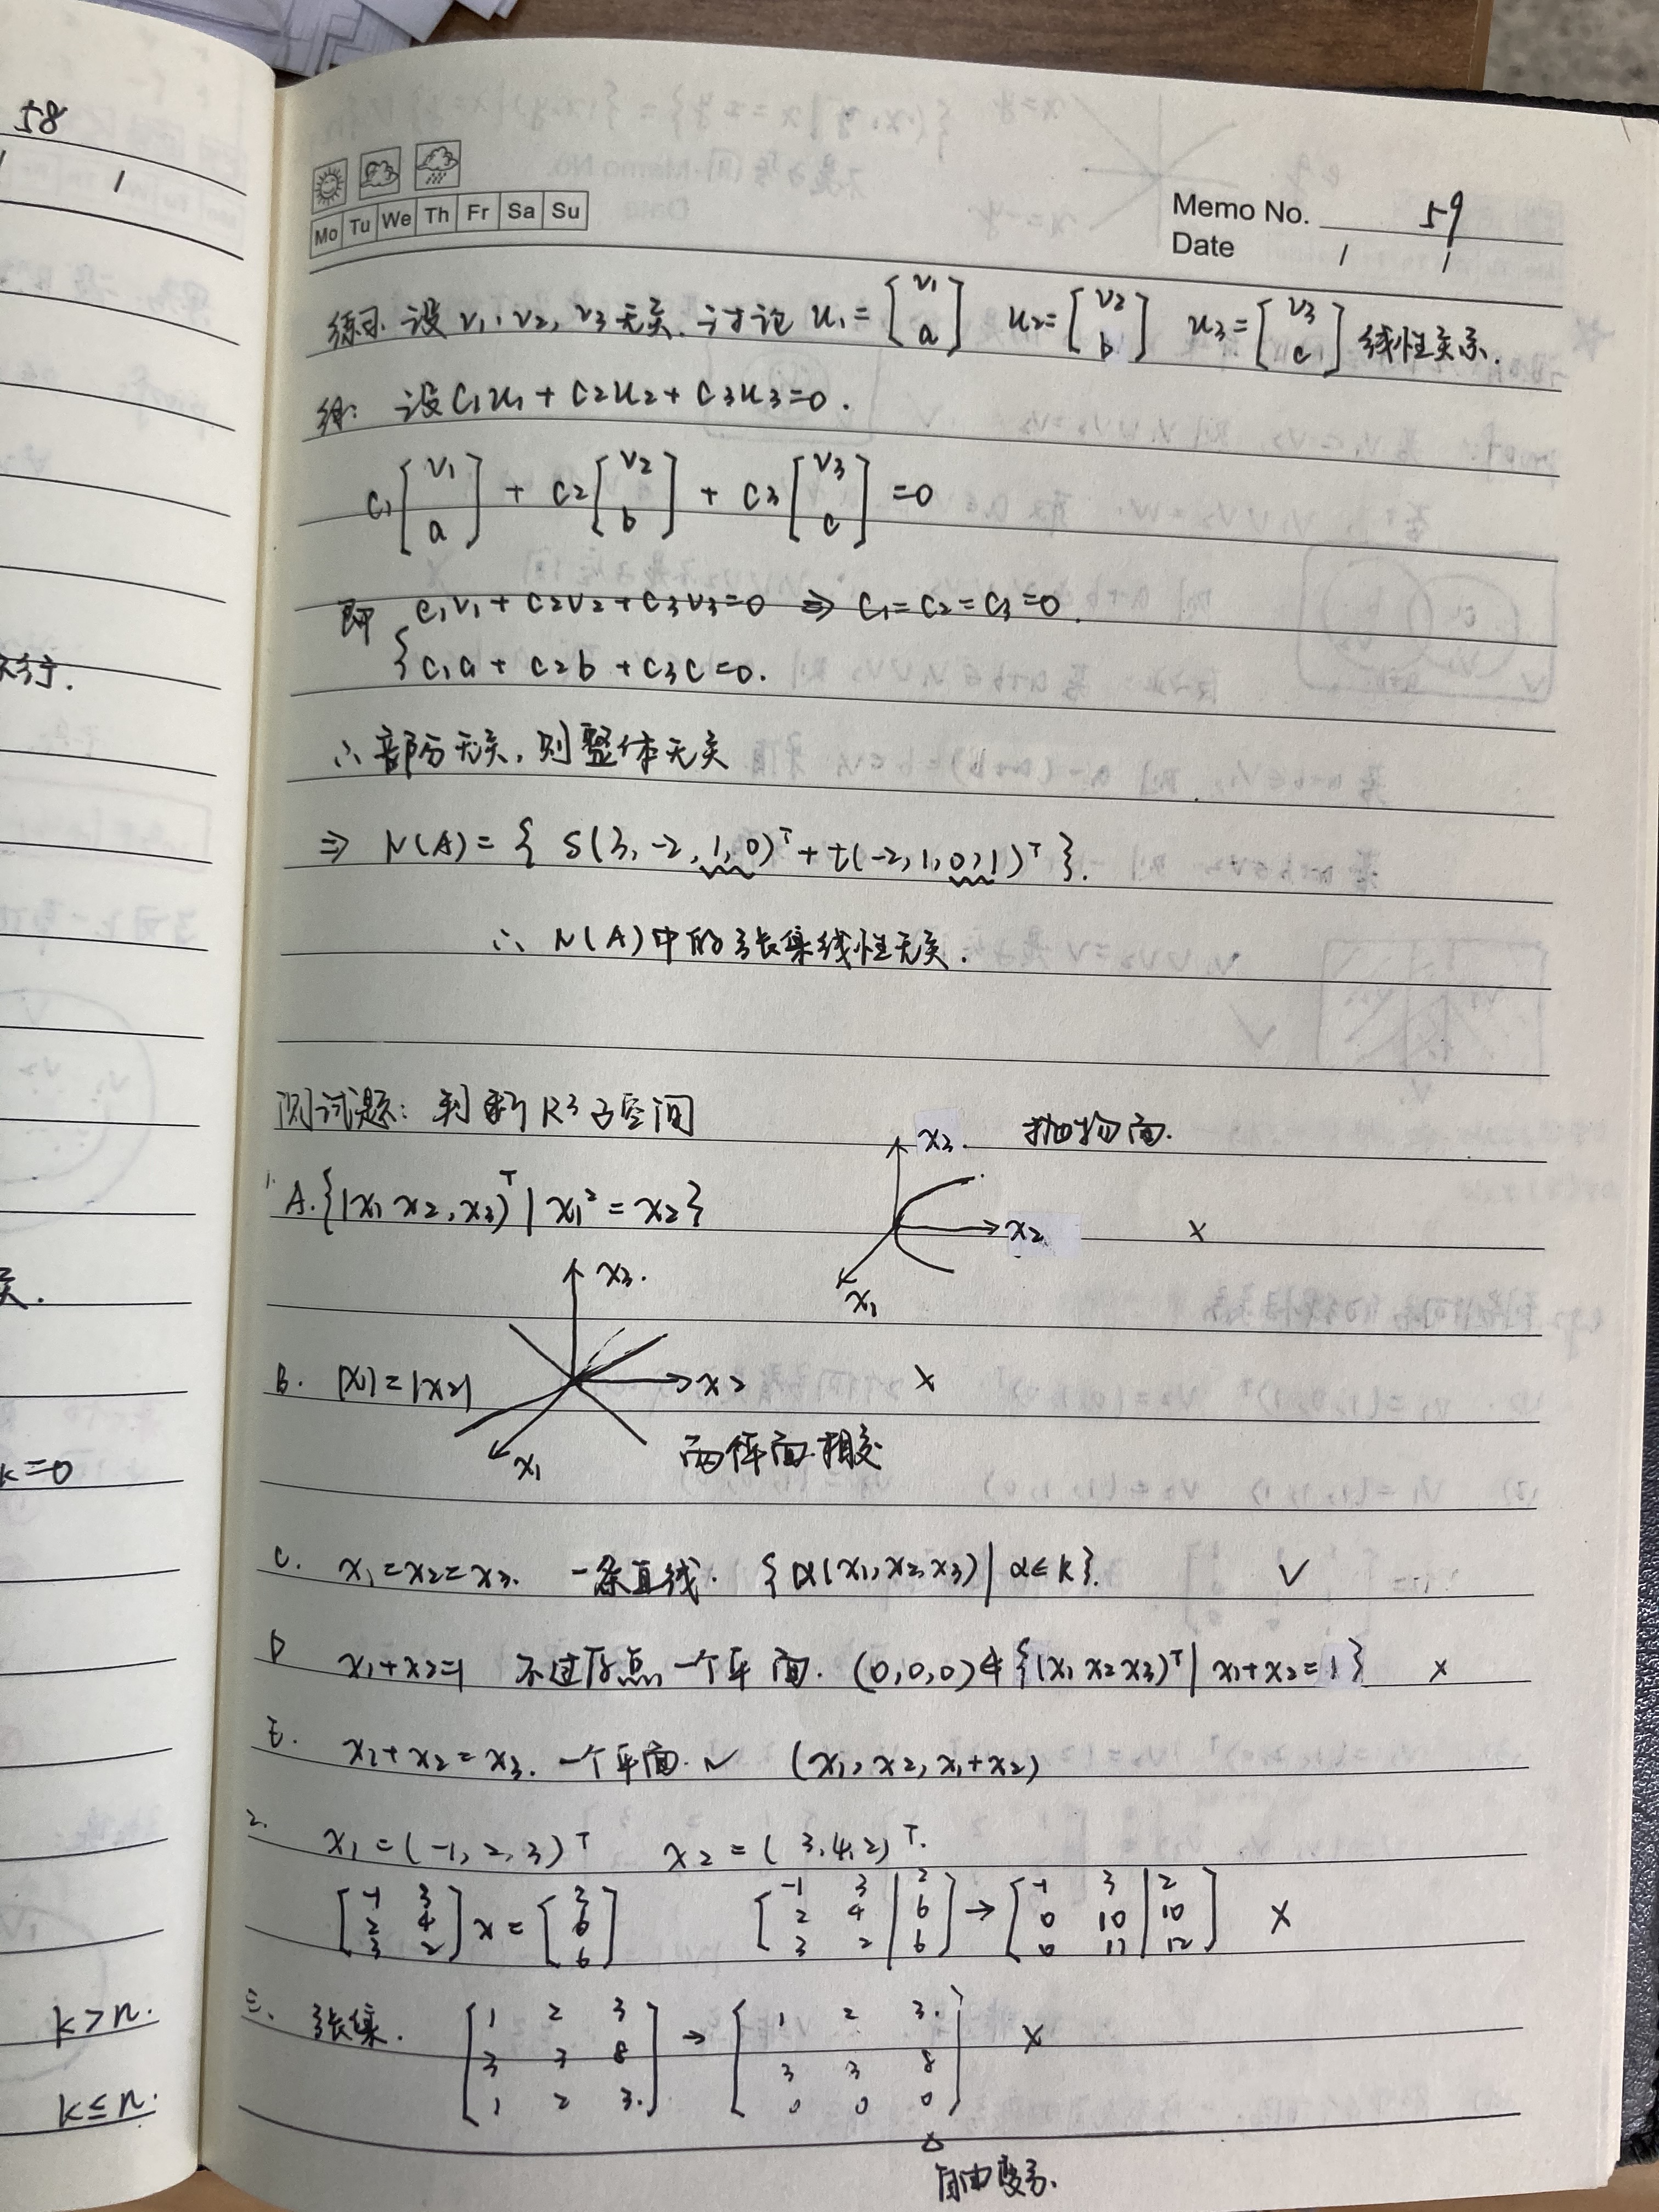 58
Mo Tu We Th Fr Sa Su
Memo No. 59
Date / /
练习. 设 v₁, v₂, v₃ 无关. 讨论 u₁ = [v₁ a] u₂ = [v₂ b] u₃ = [v₃ c] 线性关系.
设 c₁u₁ + c₂u₂ + c₃u₃ = 0.
c₁[v₁ a] + c₂[v₂ b] + c₃[v₃ c] = 0
即 { c₁v₁ + c₂v₂ + c₃v₃ = 0 ⇒ c₁ = c₂ = c₃ = 0.
c₁a + c₂b + c₃c = 0.
∴ 部分无关, 则整体无关
⇒ N(A) = { s(3, -2, 1, 0)ᵀ + t(-2, 1, 0, 1)ᵀ }.
∴ N(A) 中的张集线性无关.
测试题: 判断 R³ 子空间
x₃. 抛物面.
1. A. {(x₁ x₂, x₃)ᵀ | x₁² = x₂}
x₂ ×
x₁
x₃.
B. |x₁| = |x₂| x₂ ×
x₁ 两个平面相交
C. x₁ = x₂ = x₃. 一条直线. {α(x₁, x₂, x₃) | α ∈ K}. ✓
D x₁ + x₂ = 1 不过原点一个平面. (0, 0, 0) ∉ {(x₁ x₂ x₃)ᵀ | x₁ + x₂ = 1} ×
E. x₁ + x₂ = x₃. 一个平面. ✓ (x₁, x₂, x₁ + x₂)
2. x₁ = (-1, 2, 3)ᵀ x₂ = (3, 4, 2)ᵀ.
[-1 3; 2 4; 3 2] x = [2; 6; 6] [-1 3 | 2; 2 4 | 6; 3 2 | 6] → [-1 3 | 2; 0 10 | 10; 0 11 | 12] ×
三、 张集. [1 2 3; 3 3 8; 1 2 3.] → [1 2 3.; 3 3 8; 0 0 0] ×
△
自由变元.
行.
关.
k = 0
k > n.
k ≤ n.